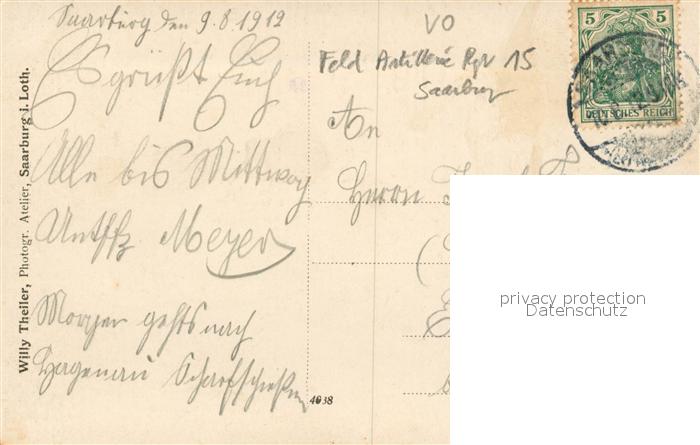 Saarburg den 9.8.1912
Es grüßt Euch
Alle bis Mittwoch
Meyer
Morgen gehts nach
Hagenau Scharfschießen
VO
Feld Artillerie Rgt 15
Saarburg
An
Herrn
5 5
DEUTSCHES REICH
Willy Theiler, Photogr. Atelier, Saarburg i. Loth.
4038
privacy protection
Datenschutz